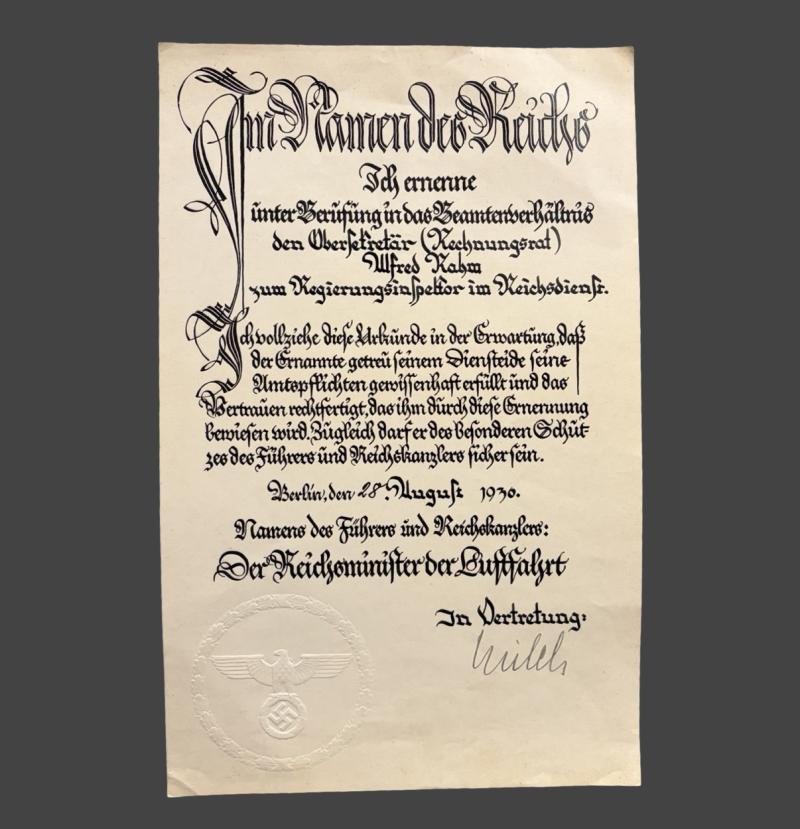 Im Namen des Reichs
Ich ernenne
unter Berufung in das Beamtenverhältnis
den Obersekretär (Rechnungsrat)
Alfred Rahm
zum Regierungsinspektor im Reichsdienst.
Ich vollziehe diese Urkunde in der Erwartung, daß
der Ernannte getreu seinem Diensteide seine
Amtspflichten gewissenhaft erfüllt und das
Vertrauen rechtfertigt, das ihm durch diese Ernennung
bewiesen wird. Zugleich darf er des besonderen Schut-
zes des Führers und Reichskanzlers sicher sein.
Berlin, den 28. August 1936.
Namens des Führers und Reichskanzlers:
Der Reichsminister der Luftfahrt
In Vertretung:
Milch